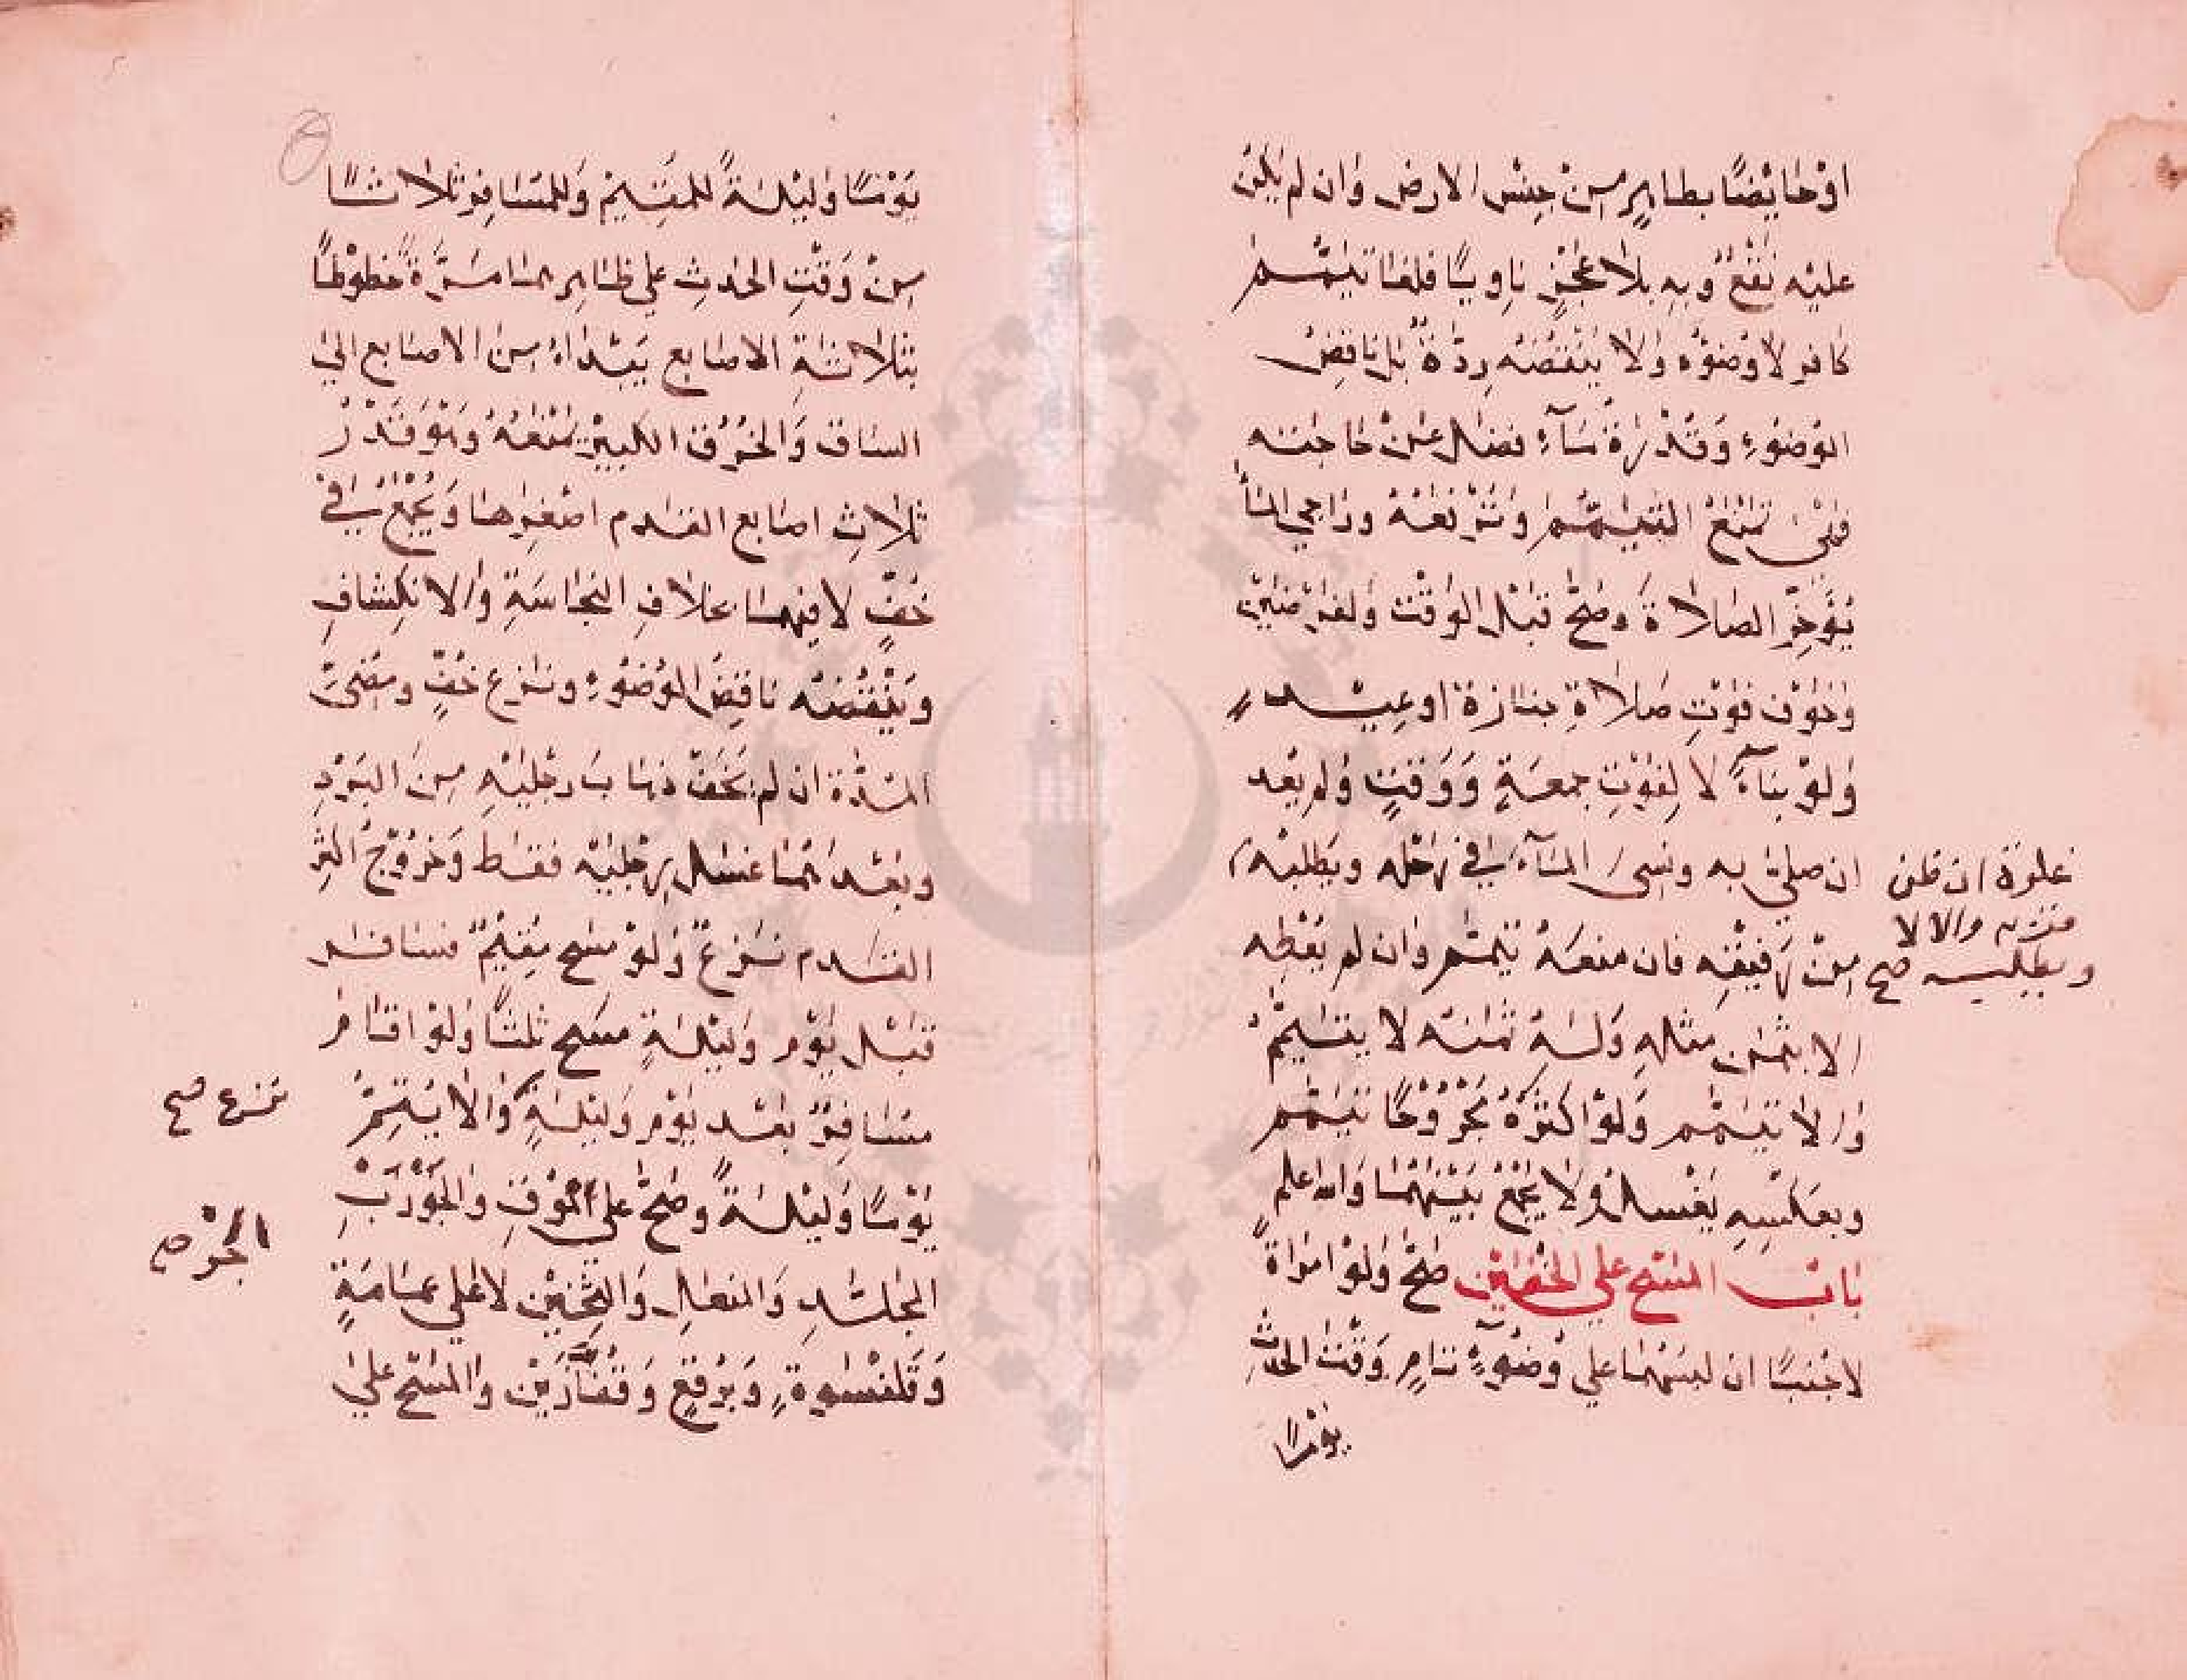 اوْحَايِضًا بطاهِرٍ مِنْ جِنْسِ الارض وَان لم يكُنْ
عليْه نَقْعٌ وَبِهِ بلَا عَجْزٍ نَاوِيًا فلغَا تيَمُّم
كافرٍ لَا وُضُوُه وَلَا يَنْقُضُه رِدّةٌ بَل نَاقِضُ
الوُضُوءِ وَقُدْرَةُ مَآءٍ فضَل عَنْ حَاجَتِه
فهْىَ تمْنَعُ التيَمُّم وَتَرْفَعُهُ ورَاجي المَأ
يُؤَخِّرُ الصَلاةَ وصَحَّ قَبْل الوَقْت وَلفَرْضَيْن
وَخَوْف فَوْتِ صَلاةِ جنازة اوْ عِيْدٍ
وَلوْ بنَآءً لا لِفَوْتِ جمعَةٍ وَوَقتٍ وَلم يعُد
ان صلىَّ به ونسِىَ المَآءَ فيْ رَحْله ويَطلبُه
غلوَة ان ظن
قربه والا لا
ويطلبه صح
مِنْ رَفيْقِه فان منعَهُ تيمَّم وَان لم يُعْطِه
الا بثَمَنِ مثلِهِ وَلهُ ثمَنُه لا يتَيَمَّمُ
وَالا تيَمَّم وَلوْ اكثرُهُ مَجْرُوْحًا تيَمَّم
وبعَكْسِهِ يَغْسلُ وَلا يَجْمَعُ بَيْنَهُمَا وَالله اعلم
بَابُ المَسْحِ علي الخُفَّيْن صَحَّ وَلوْ امرَاةً
لا جُنُبًا ان لبسَهُمَا علي وُضوْءٍ تامٍ وَقْت الحَدَثِ
يوْمًا
يَوْمًا وَليْلَةً للمُقِيْمِ وَللمُسَافِرِ ثلَاثًا
مِنْ وَقْتِ الحَدثِ علي ظاهِرِهمَا مَرَّةً خطوْطًا
بثلَاثَةِ الاصَابع يَبْدَاهُ مِن الاصَابع الىَ
السَاق وَالخَرْقُ الكَبيْرُ يَمْنَعُهُ وَهْوَ قَدْرُ
ثلَاثِ اصَابع القَدم اصْغرِهَا وَيُجْمَعُ فيْ
خُفٍّ لا فيهِمَا بخلَافِ النجَاسَةِ وَالانكِشافِ
وَيَنْقُضُه نَاقِضُ الوُضُوءِ ونَزع خُفٍّ ومُضىُّ
المُدَّة ان لم يَخَفْ ذهَابَ رجْليْهِ مِنَ البَرْدِ
وبَعْدَهُمَا غسَل رجْليْه فقَط وَخرُوْجُ اكثر
القَدم نَزْعٌ وَلوْ مسَح مُقيْمٌ فسَافر
قبْل يَوْم وَليْلةٍ مسَح ثلثًا وَلوْ اقَامَ
مُسَافِرٌ بعْد يَوْم وَليْلةٍ وَالا يُتِمُّ
نزع صح
يَوْمًا وَليْلةً وصَحَّ علي المُوْقِ وَالجَوْرَبِ
الجرْ صح
المُجلَّدِ وَالمنعَلِ وَالثَّخِيْن لا عَلي عمَامَةٍ
وَقَلنْسُوةٍ وَبُرْقعٍ وَقُفَّازَيْن وَالمَسْح علىَ